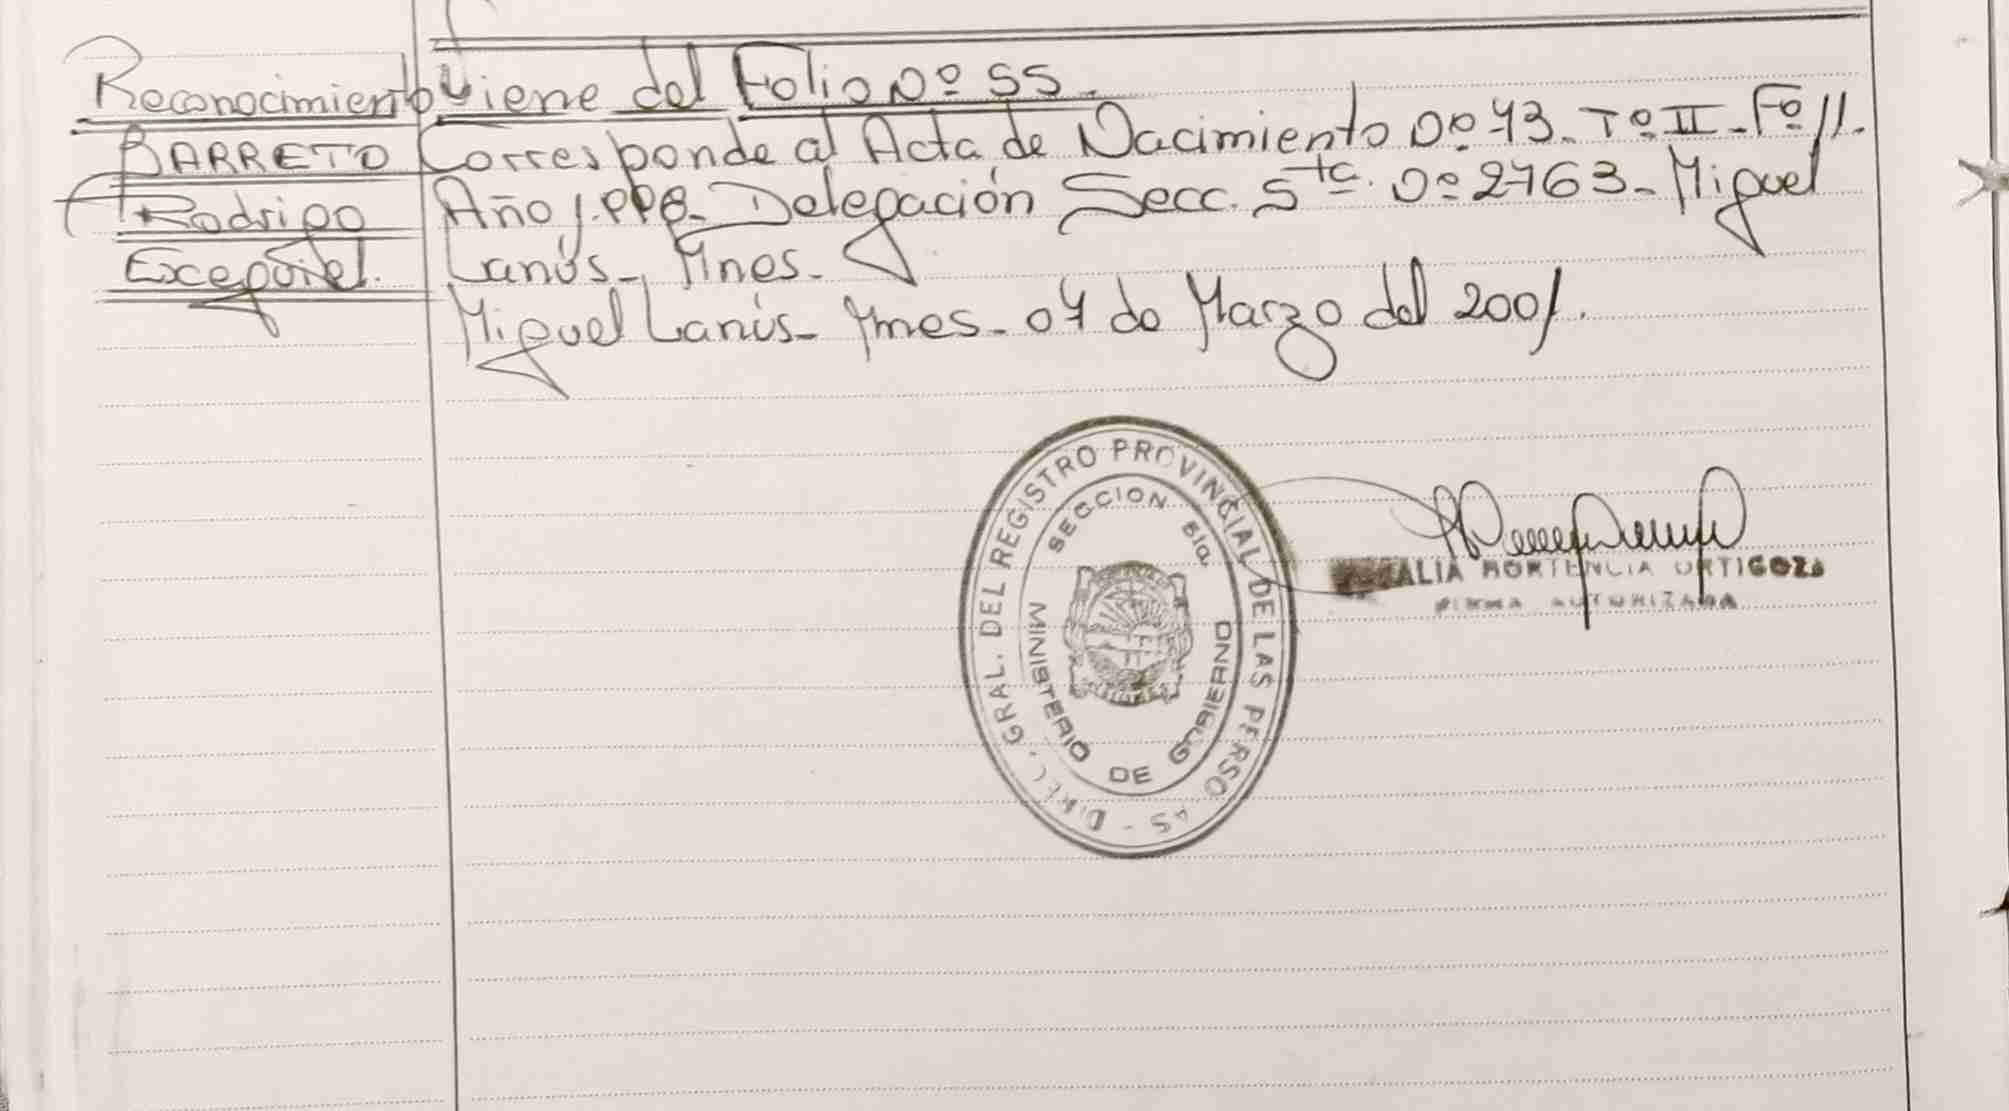 Reconocimiento
BARRETO
Rodrigo
Excequiel.
Viene del Folio Nº 55.
Corresponde al Acta de Nacimiento Nº 43. Tº II - Fº 11.
Año 1.998 - Delegación Secc. 5ta. Nº 2463 - Miguel
Lanús -, Mnes.
Miguel Lanús - Mnes - 04 de Marzo del 2001.
DIREC. GRAL. DEL REGISTRO PROVINCIAL DE LAS PERSO AS -
SECCION 5ta.
MINISTERIO DE GOBIERNO
ALIA HORTENCIA ORTIGOZA
FIRMA AUTORIZADA